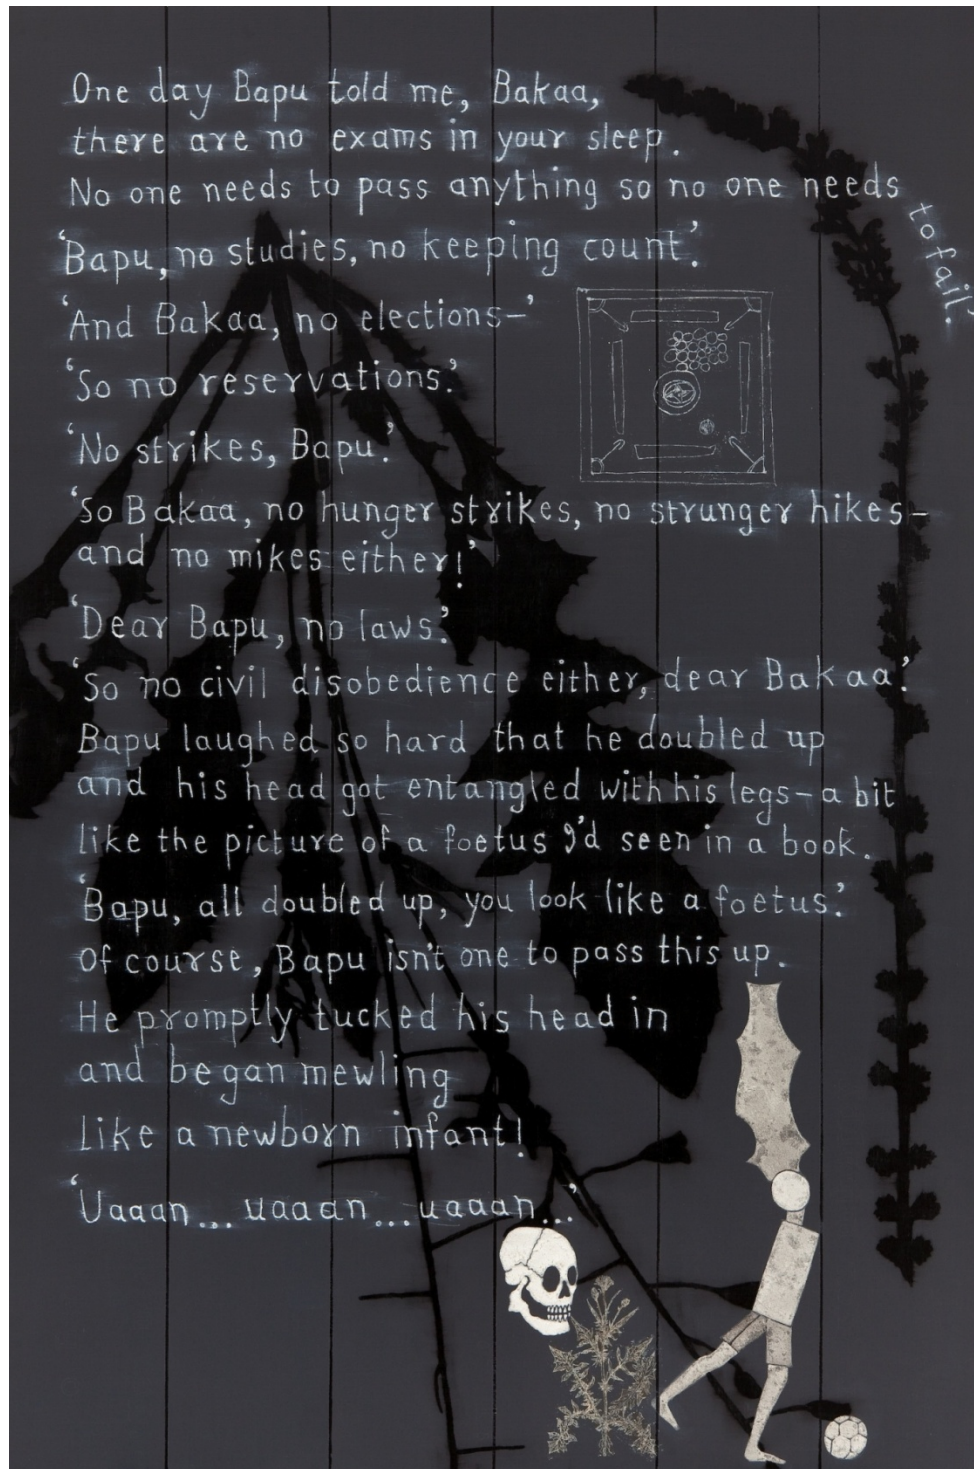 One day Bapu told me, Bakaa,
there are no exams in your sleep.
No one needs to pass anything so no one needs to fail.'
'Bapu, no studies, no keeping count.'
'And Bakaa, no elections–'
'So no reservations.'
'No strikes, Bapu.'
'So Bakaa, no hunger strikes, no strunger hikes–
and no mikes either!'
'Dear Bapu, no laws.'
'So no civil disobedience either, dear Bakaa.'
Bapu laughed so hard that he doubled up
and his head got entangled with his legs–a bit
like the picture of a foetus I'd seen in a book.
'Bapu, all doubled up, you look like a foetus.'
Of course, Bapu isn't one to pass this up.
He promptly tucked his head in
and began mewling
like a newborn infant!
'Uaaan...uaaan...uaaan...'